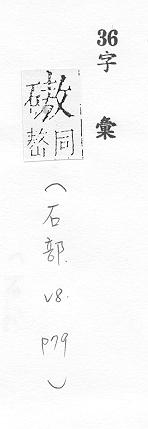 36字彙
磝
同
嶅
(石部. v8. p79)